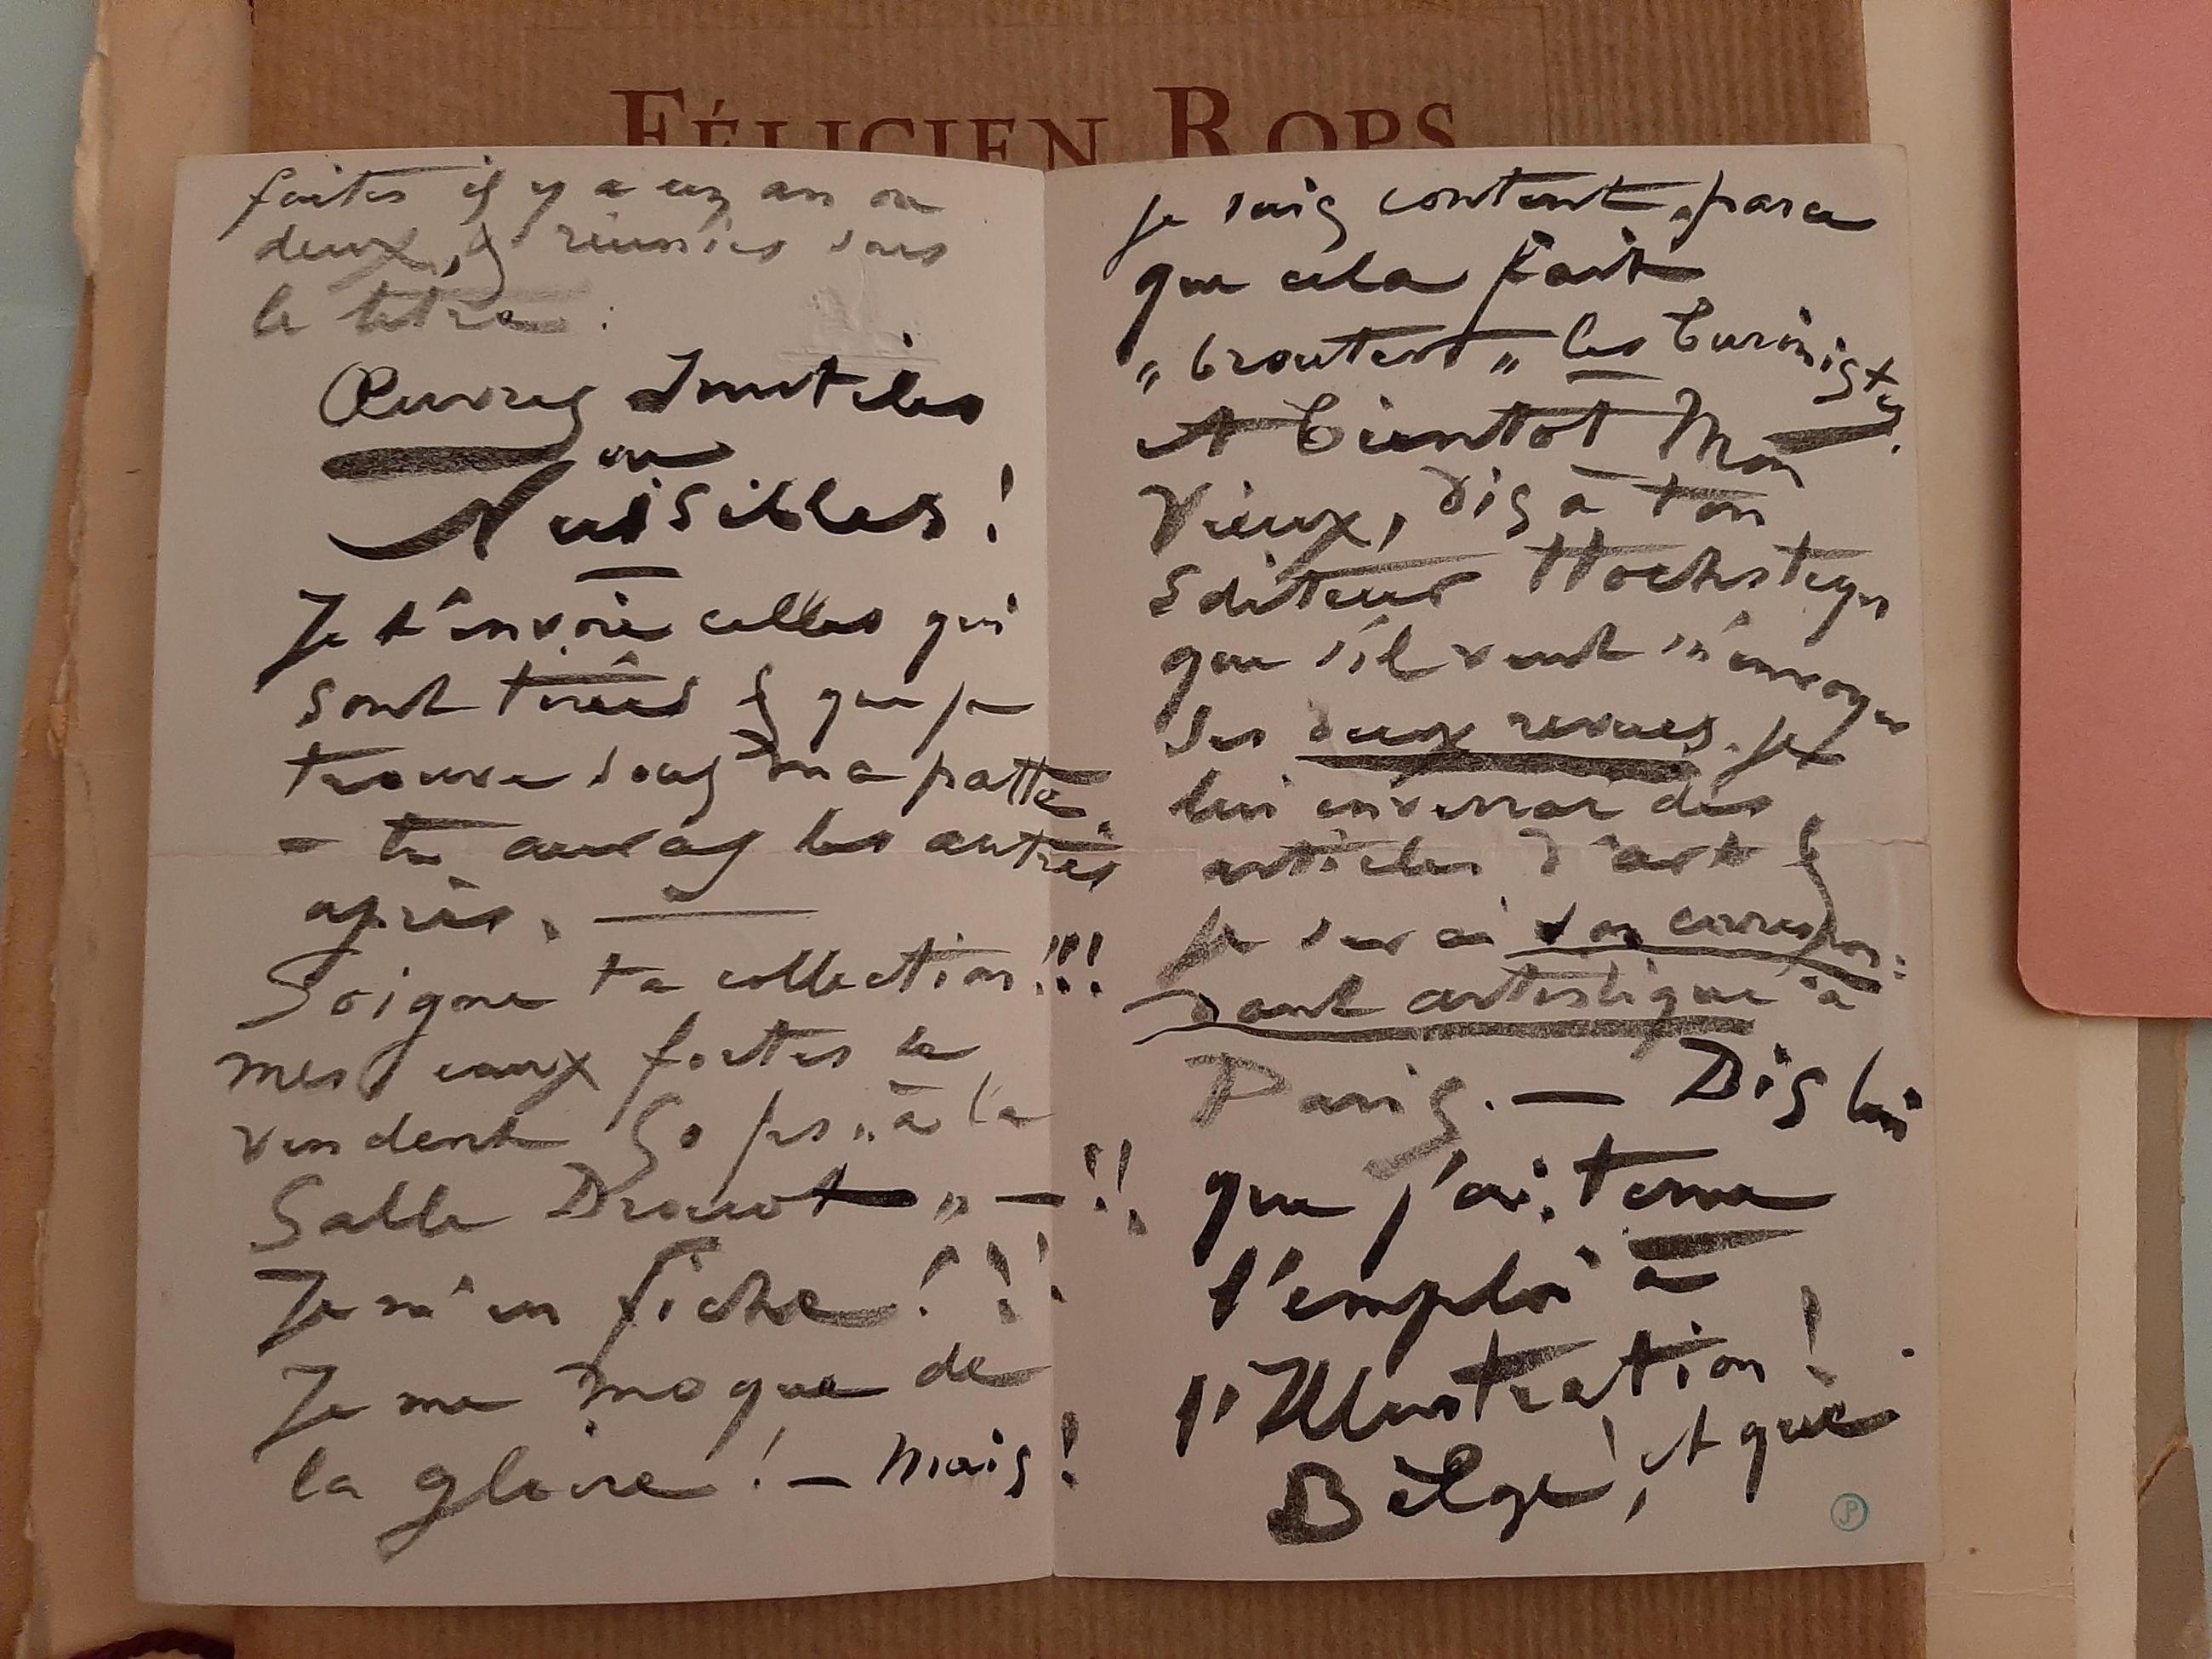 FÉLICIEN ROPS
faites il y a un an ou
deux, & réunies sous
le titre :
Œuvres Inutiles
ou
Nuisibles !
Je t'envoie celles qui
sont tirées & que je
trouve sous ma patte.
– tu auras les autres
après. —
Soigne ta collection !!!
mes eaux fortes se
vendent „ à la
Salle Drouot „ — !!
Je m'en fiche ! ! !
Je me moque de
la gloire ! – mais !
je suis content, parce
que cela fait
„ brouter „ les burinistes.
A bientot Mon
Vieux, dis à ton
Editeur
que s'il veut m'envoyer
ses deux revues. je
lui enverrai des
articles d'art &
je serai son correspon:
dant artistique à
Paris. — Dis lui
que j'ai tenu
l'emploi à
l'Illustration !
Belge !, et que
JP